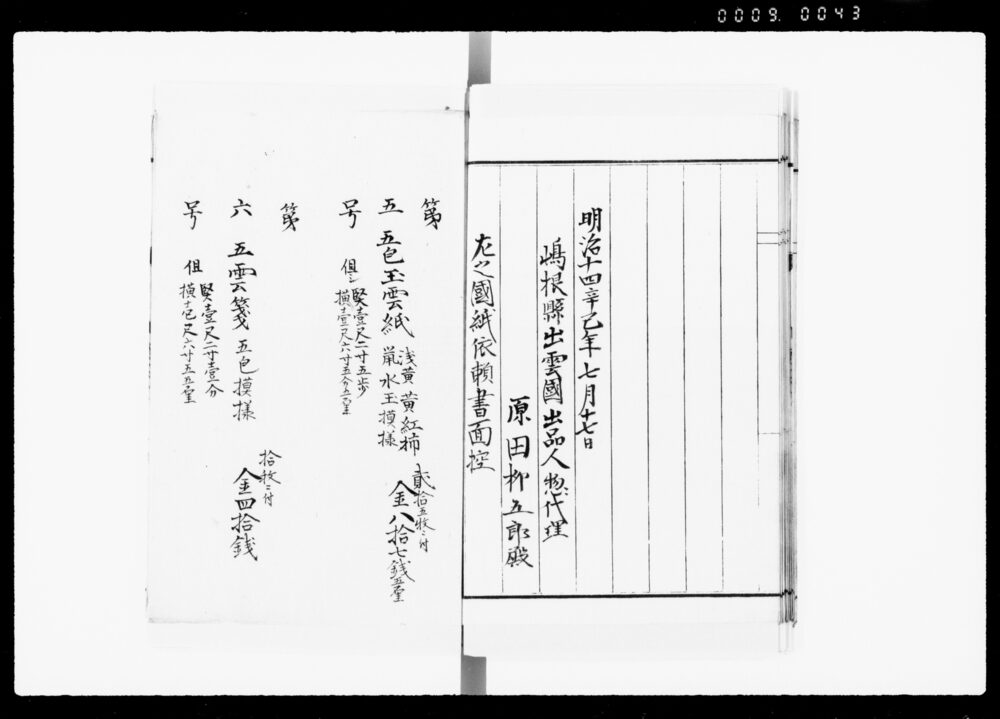 0009. 0043
明治十四辛巳年七月十七日
嶋根縣出雲國出品人惣代理
原田柳五郎殿
左之國紙依頼書面控
第五号
五色玉雲紙
浅黄 黄 紅 柿
鼠 水玉摸様
但シ
竪壹尺二寸五歩
横壹尺六寸五分五厘
貳拾五牧ニ付
金八拾七銭五厘
第六号
五雲箋 五色摸様
但
竪壹尺二寸壹分
横壱尺六寸五五厘
拾牧ニ付
金四拾銭